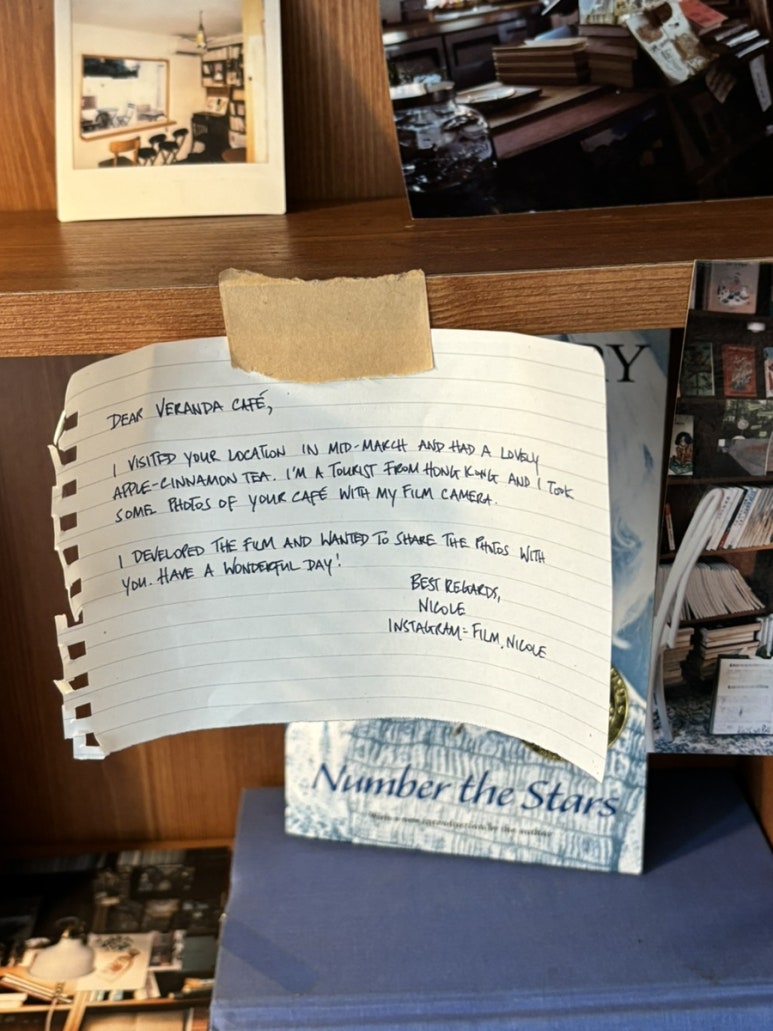 RY
DEAR VERANDA CAFÉ,
I VISITED YOUR LOCATION IN MID-MARCH AND HAD A LOVELY
APPLE-CINNAMON TEA. I'M A TOURIST FROM HONG KONG AND I TOOK
SOME PHOTOS OF YOUR CAFÉ WITH MY FILM CAMERA.
I DEVELOPED THE FILM AND WANTED TO SHARE THE PHOTOS WITH
YOU. HAVE A WONDERFUL DAY!
BEST REGARDS,
NICOLE
INSTAGRAM: FILM.NICOLE
Number the Stars
With a new introduction by the author